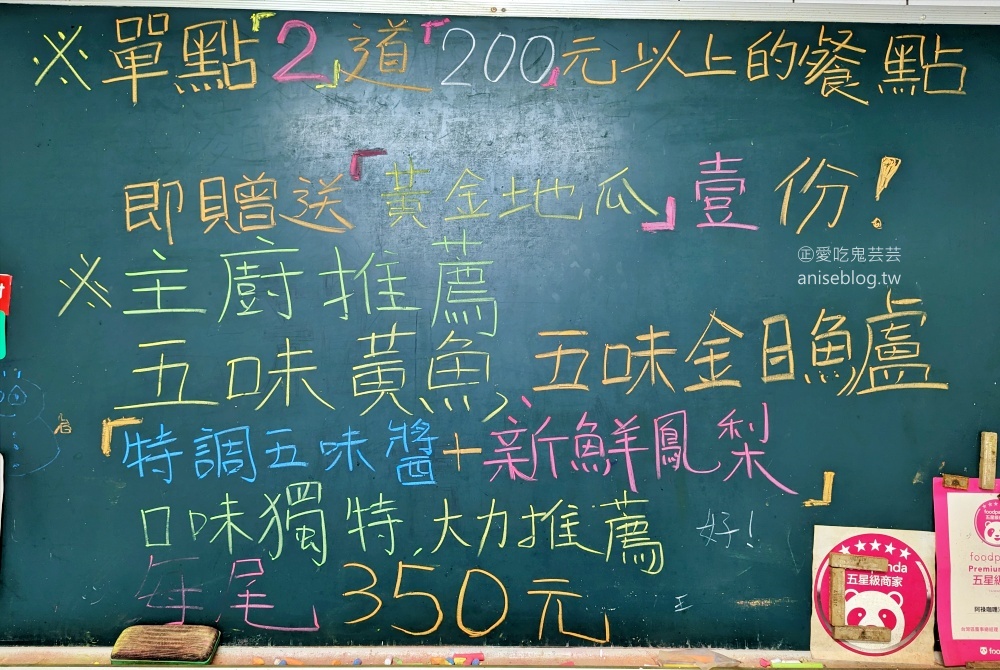 ※單點「2」道「200」元以上的餐點
即贈送「黃金地瓜」壹份!
㊣愛吃鬼芸芸
aniseblog.tw
※主廚推薦
五味黃魚、五味金目鱸
「特調五味醬+新鮮鳳梨」
口味獨特,大力推薦 好!
每尾350元
五星級商家
foodp
Premium
五星級